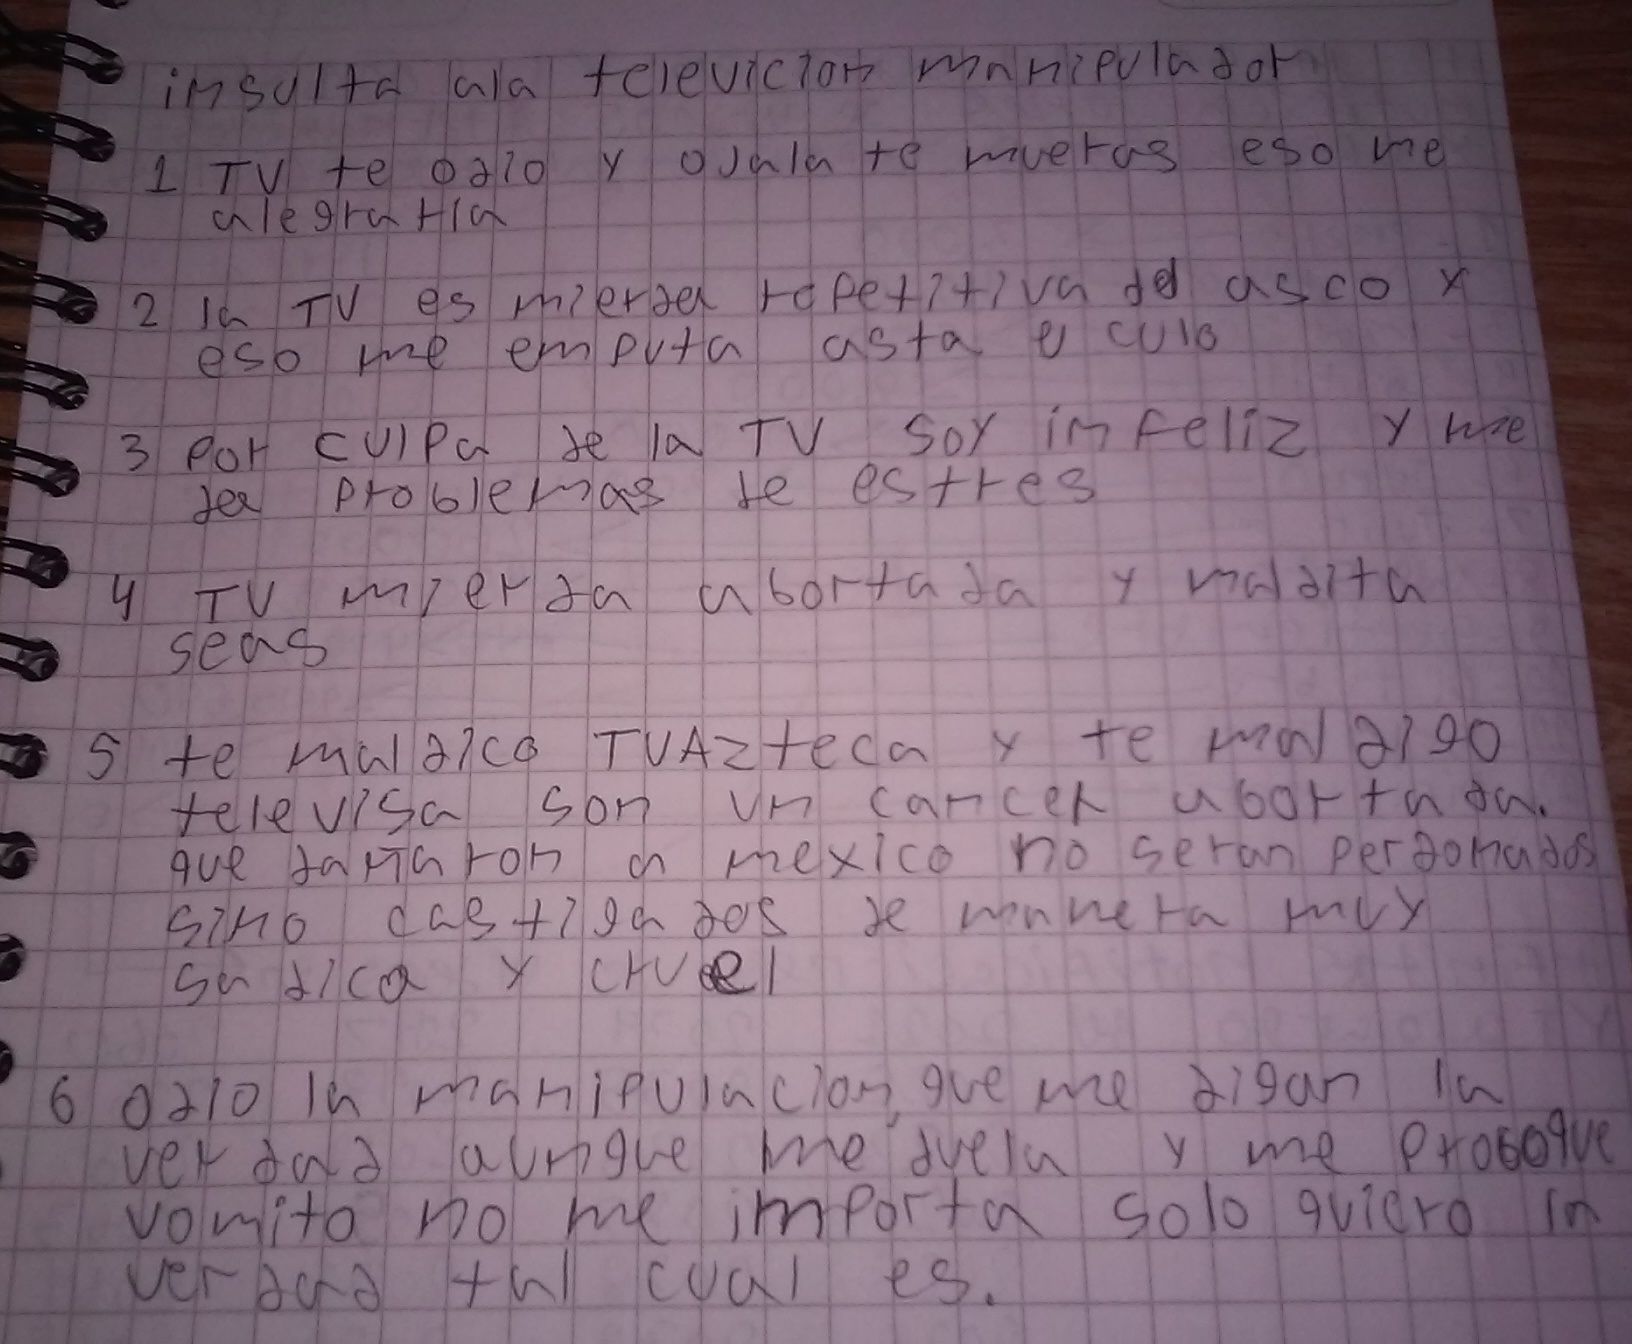 insulta ala televicion manipulador
1 TV te odio y ojala te mueras eso me
alegraria
2 la TV es mierda repetitiva del asco y
eso me emputa asta el culo
3 por culpa de la TV soy imfeliz y me
da problemas de estres
4 TV mierda abortada y maldita
seas
5 te maldico TVAzteca y te maldigo
televisa son un cancer abortada.
que dañaron a mexico no seran perdonados
sino castigados de manera muy
sadica y cruel
6 odio la manipulacion, que me digan la
verdad aunque me duela y me proboque
vomito no me importa solo quiero la
verdad tal cual es.